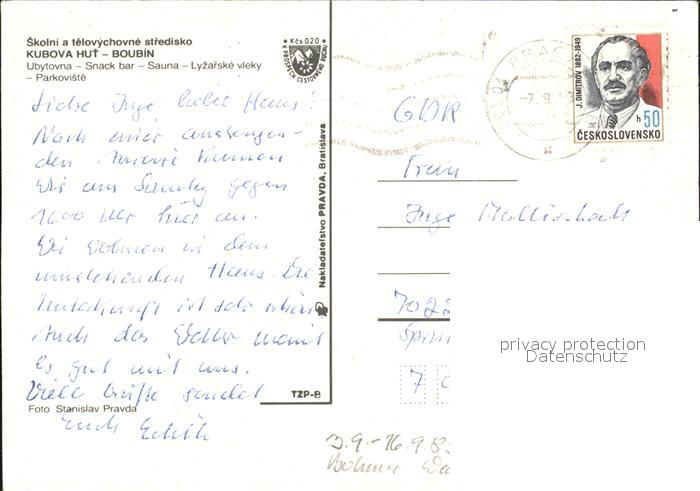 Školní a tělovýchovné středisko
KUBOVA HUŤ – BOUBÍN
Ubytovna – Snack bar – Sauna – Lyžařské vleky
– Parkoviště
Kčs 0,20
V PROSPĚCH CESTOVNÍHO RUCHU
Liebe Inge, lieber Hans!
Nach einer anstrengen-
den Anreise kamen
Wir am Samstag gegen
16 00 Uhr hier an.
Wir wohnen in dem
umstehenden Haus. Die
Unterkunft ist sehr schön
Auch das Wetter meint
es gut mit uns.
Viele Grüße sendet
Euch Edith
Foto Stanislav Pravda
TZP-B
Nakladateľstvo PRAVDA, Bratislava
J. DIMITROV 1882-1949
h 50
ČESKOSLOVENSKO
GDR
Frau
Inge
7022
7
3.9.-16.9.8
privacy protection
Datenschutz